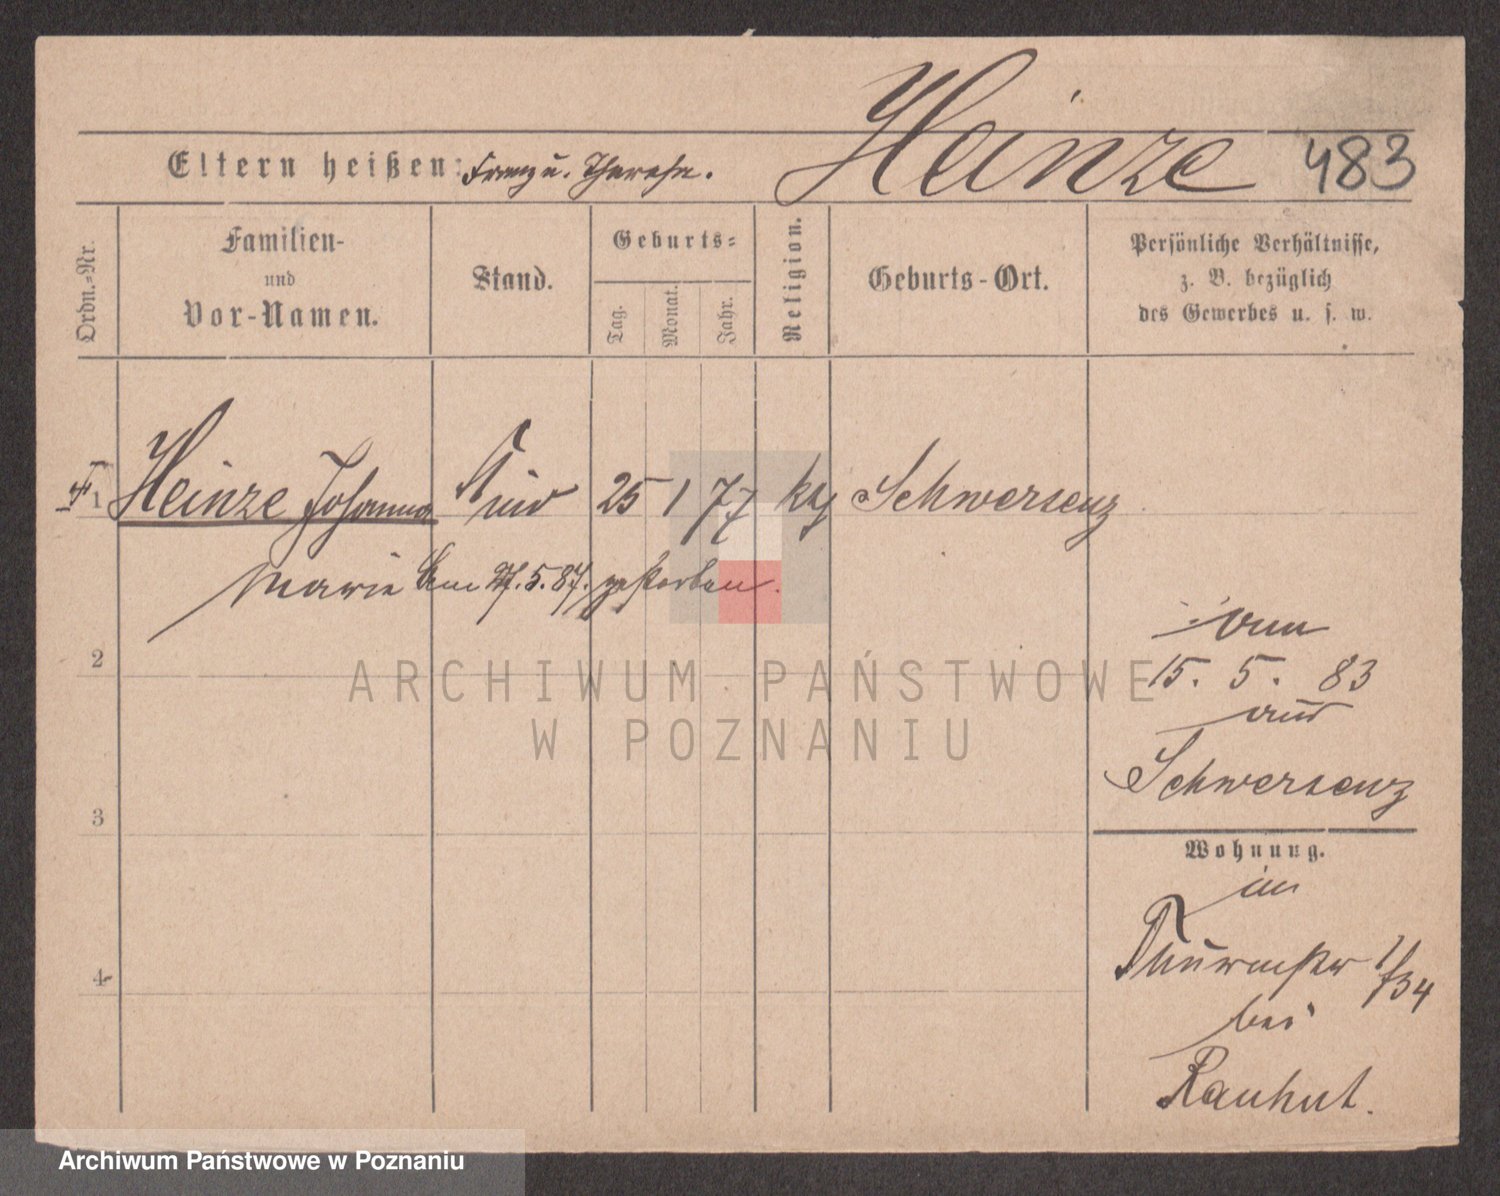 Heinze 483
Eltern heißen: Franz u. Therese.
Ordn.-Nr.
Familien-
und
Vor-Namen.
Stand.
Geburts-
Tag.
Monat.
Jahr.
Religion.
Geburts-Ort.
Persönliche Verhältnisse,
z. B. bezüglich
des Gewerbes u. s. w.
1 Heinze Johanna Kind 25 1 77 kth Schwersenz
Marie am 27.5.87. gestorben.
2
3
4
15. 5. 83
aus
Schwersenz
Wohnung.
in
Thurmstr 1/34
bei
Rauhut.
ARCHIWUM PAŃSTWOWE
W POZNANIU
Archiwum Państwowe w Poznaniu